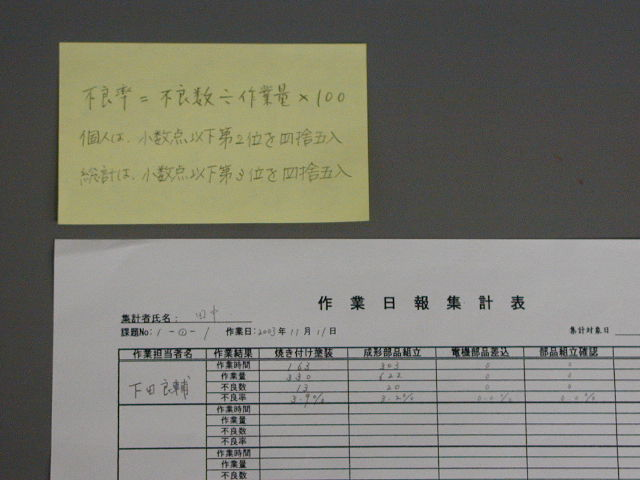 不良率 = 不良数 ÷ 作業量 × 100
個人は、小数点以下第2位を四捨五入
総計は、小数点以下第3位を四捨五入
作業日報集計表
集計者氏名: 田中
課題No: 1-②-1 作業日: 2003年 11月 11日 集計対象日
作業担当者名 作業結果 焼き付け塗装 成形部品組立 電機部品差込 部品組立確認
下田良輔
作業時間 163 303 0 0
作業量 330 622 0 0
不良数 13 20 0 0
不良率 3.9% 3.2% 0.0% 0.0%
作業時間
作業量
不良数
不良率
作業時間
作業量
不良数